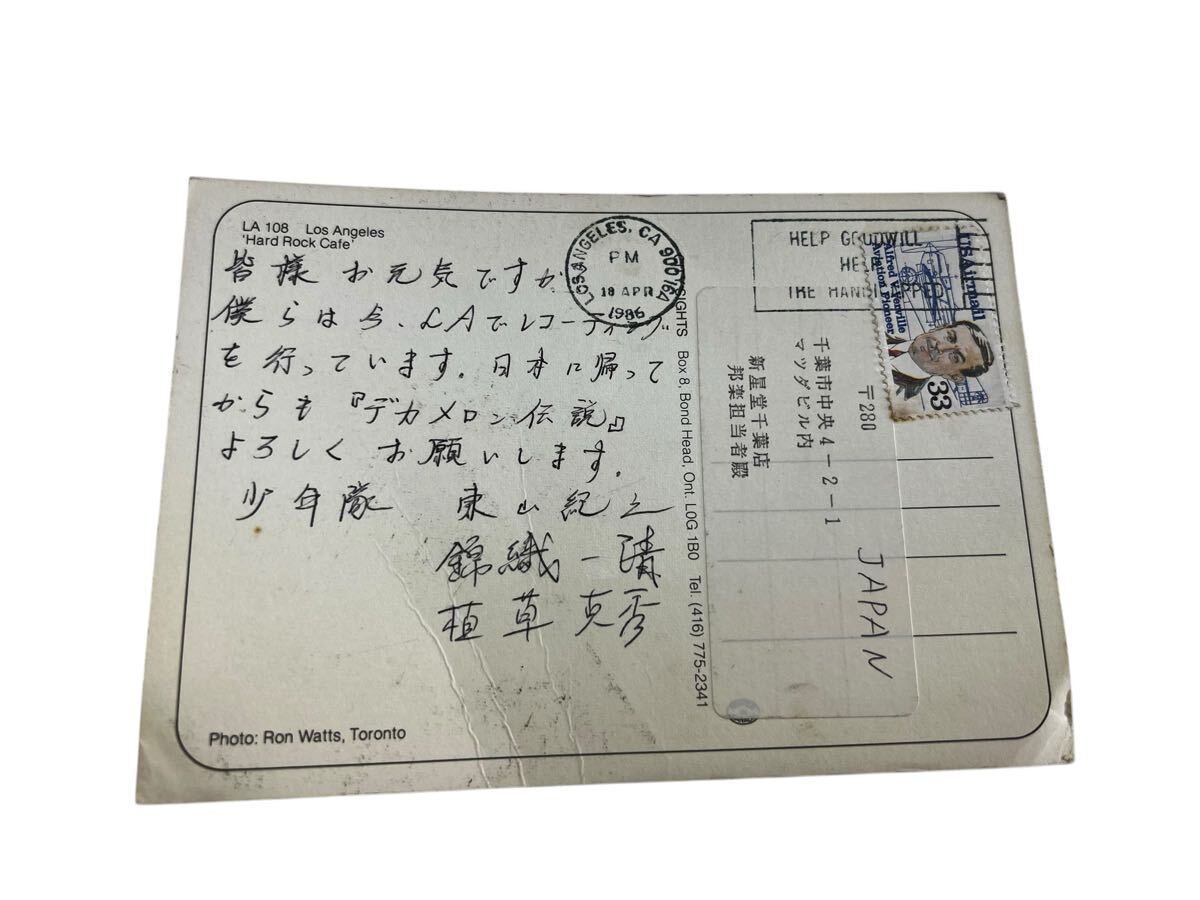 LA 108 Los Angeles
'Hard Rock Cafe'
皆様 お元気ですか
僕らは今、LAでレコーディング
を行っています。日本に帰って
からも『デカメロン伝説』
よろしくお願いします。
少年隊 東山紀之
錦織一清
植草克秀
Photo: Ron Watts, Toronto
SIGHTS Box 8, Bond Head, Ont. L0G 1B0 Tel. (416) 775-2341
LOS ANGELES, CA 900
PM
18 APR
1986
HELP GOODWILL
HELP
THE
USAirmail
Alfred V. Verville
Aviation Pioneer
33
〒280
千葉市中央4-2-1
マツダビル内
新星堂千葉店
邦楽担当者殿
JAPAN